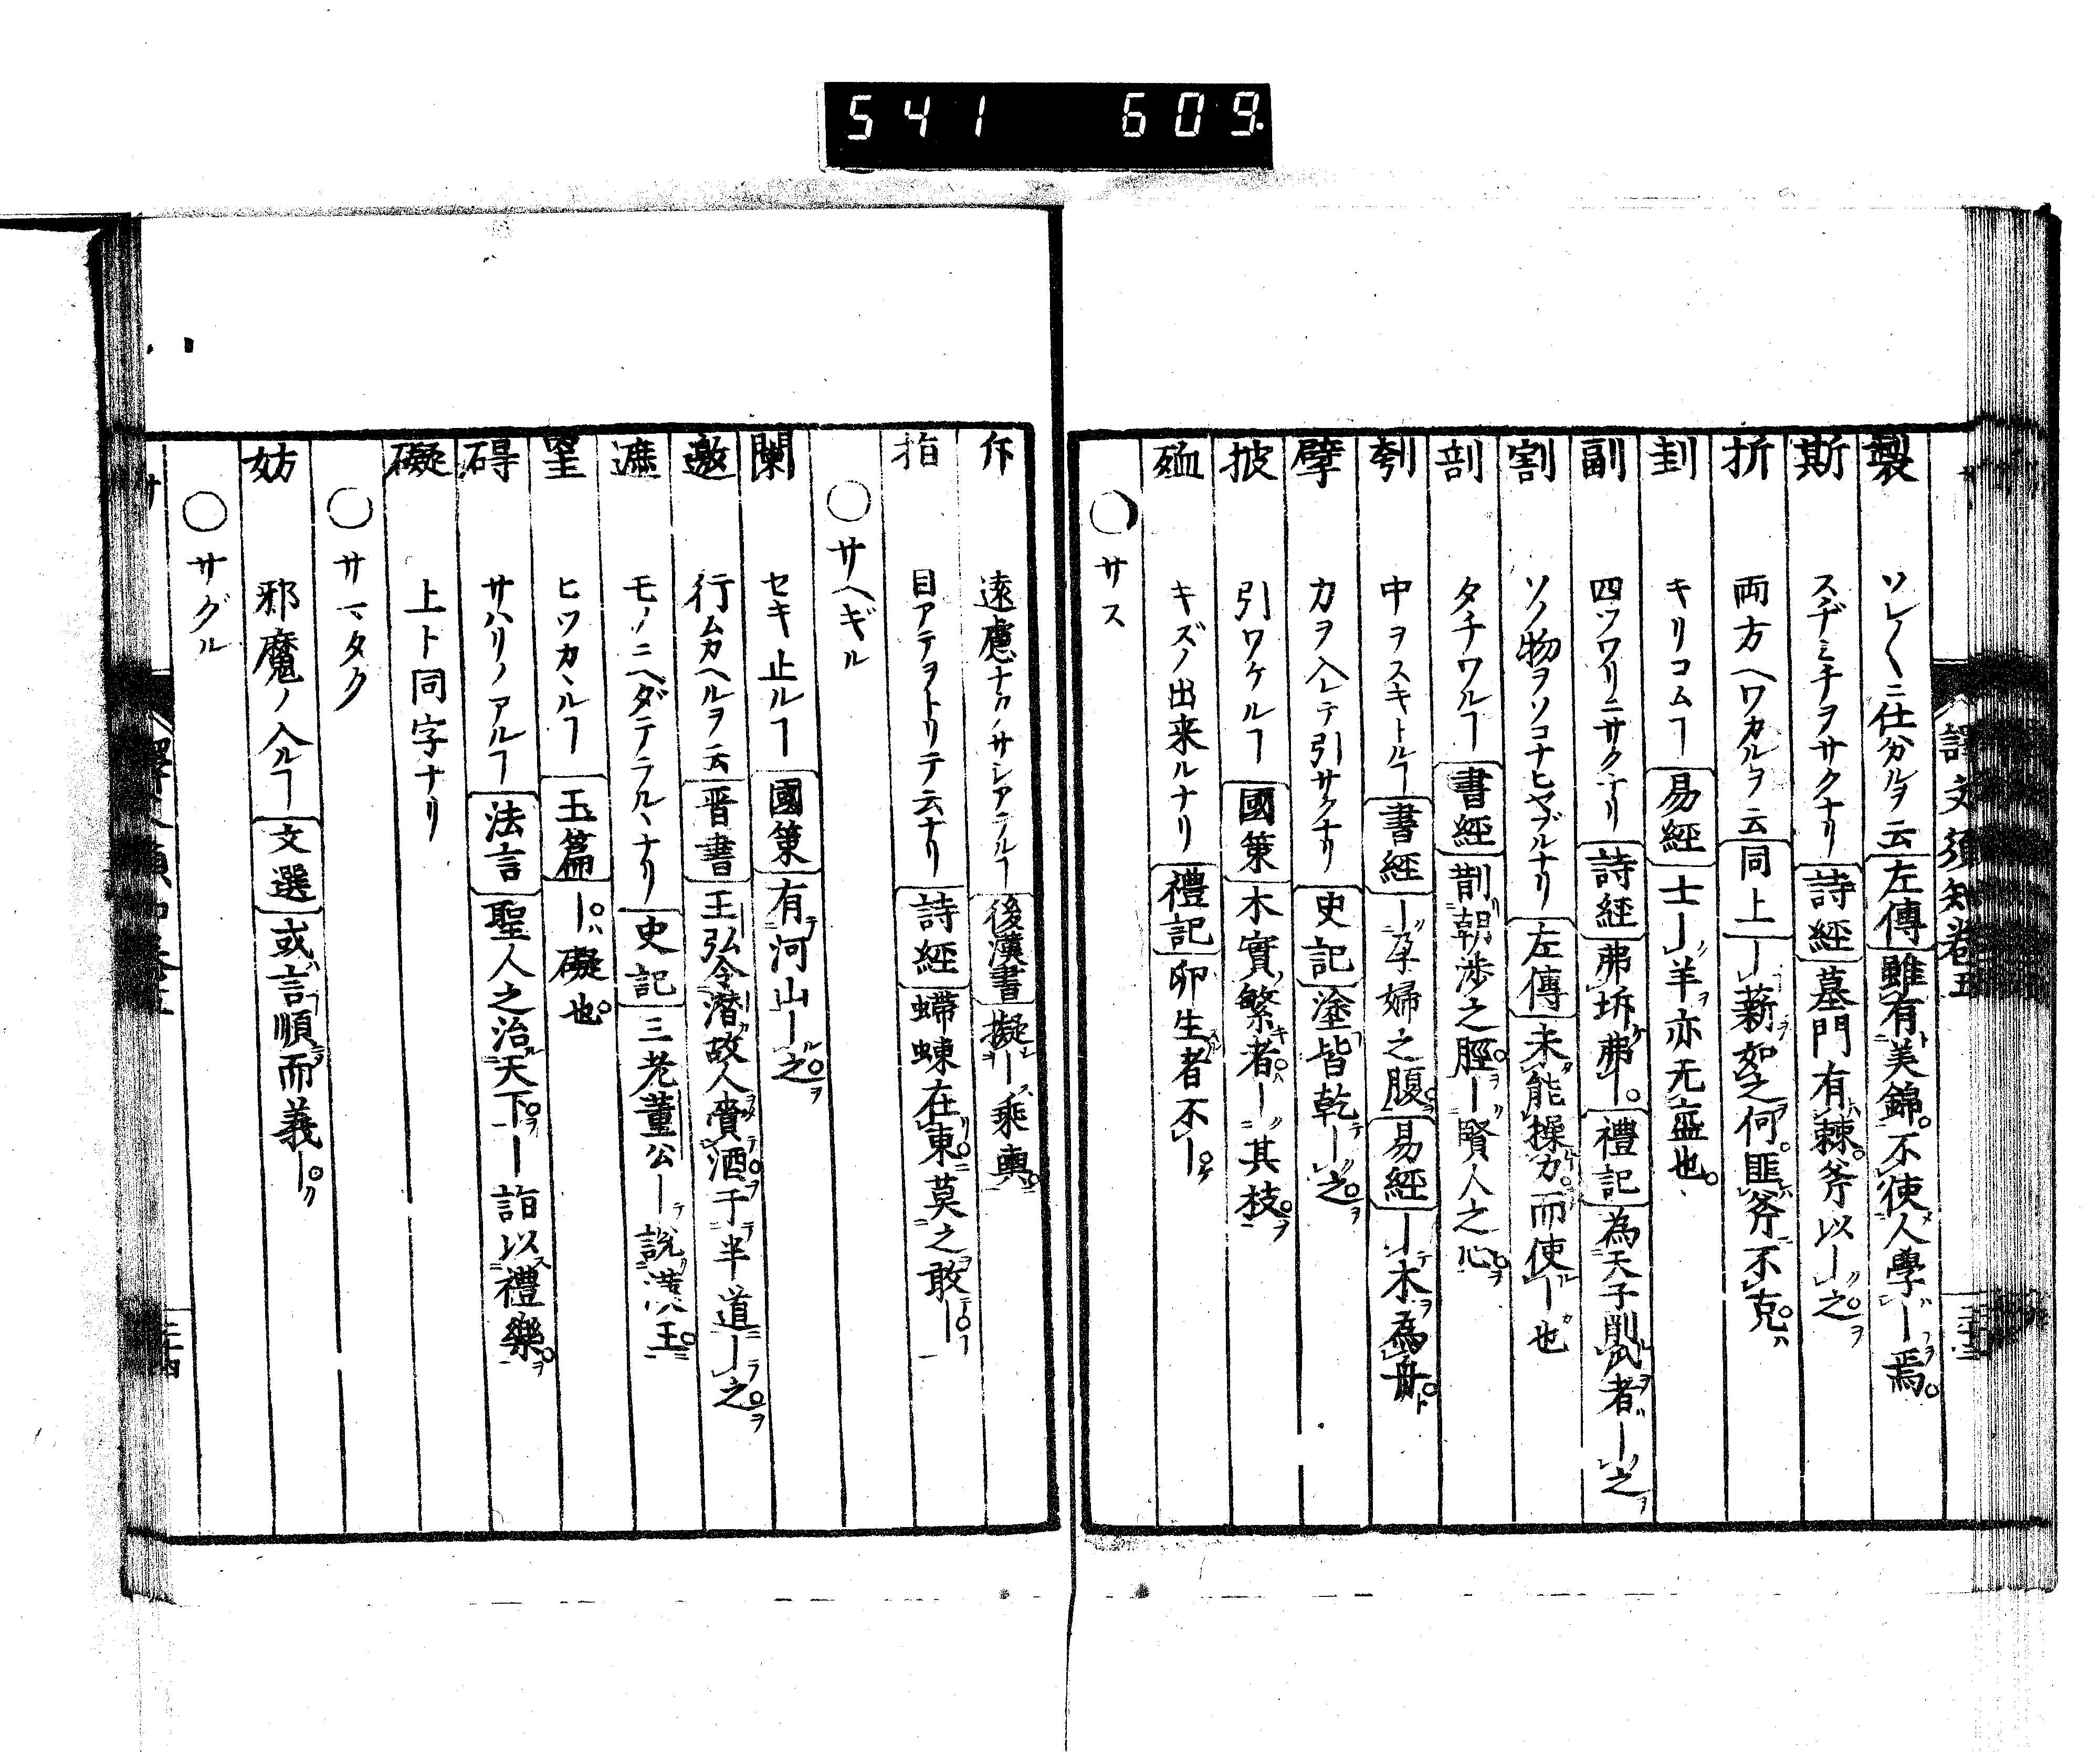 541 609.
譯文須知卷五
製 ソレ〱ニ仕分ルヲ云 左傳 雖有美錦不使人學ー焉
斯 スヂミチヲサクナリ 詩經 墓門有棘斧以ー之
折 両方ヘワカルヲ云 同上 ー薪如之何匪斧不克
刲 キリコムヿ 易經 士ー羊亦无𥁃也
副 四ツワリニサクナリ 詩經 弗坼弗ー 禮記 為天子削瓜者ー之
割 ソノ物ヲソコナヒヤブルナリ 左傳 未能操刀而使ー也
剖 タチワルヿ 書經 斮朝渉之脛ー賢人之心
刳 中ヲスキトルヿ 書經 ー孕婦之腹 易經 ー木為舟
擘 力ヲ入レテ引サクナリ 史記 塗皆乾ー之
披 引ワケルヿ 國策 木實繁者ー其枝
殈 キズノ出来ルナリ 禮記 卵生者不ー
○サス
斥 遠慮ナクサシアテルヿ 後漢書 擬ー乘輿
指 目アテヲトリテ云ナリ 詩經 蝃蝀在東莫之敢ー
○サヘギル
闌 セキ止ルヿ 國策 有河山ー之
邀 行ムカヘルヲ云 晋書 王弘令潜故人賫酒于半道ー之
遮 モノニヘダテラルヽナリ 史記 三老董公ー説漢王
罣 ヒツカヽルヿ 玉篇 ー礙也
碍 サハリノアルヿ 法言 聖人之治天下ー諸以禮樂
礙 上ト同字ナリ
○サマタク
妨 邪魔ノ入ルヿ 文選 或言順而義ー
○サグル